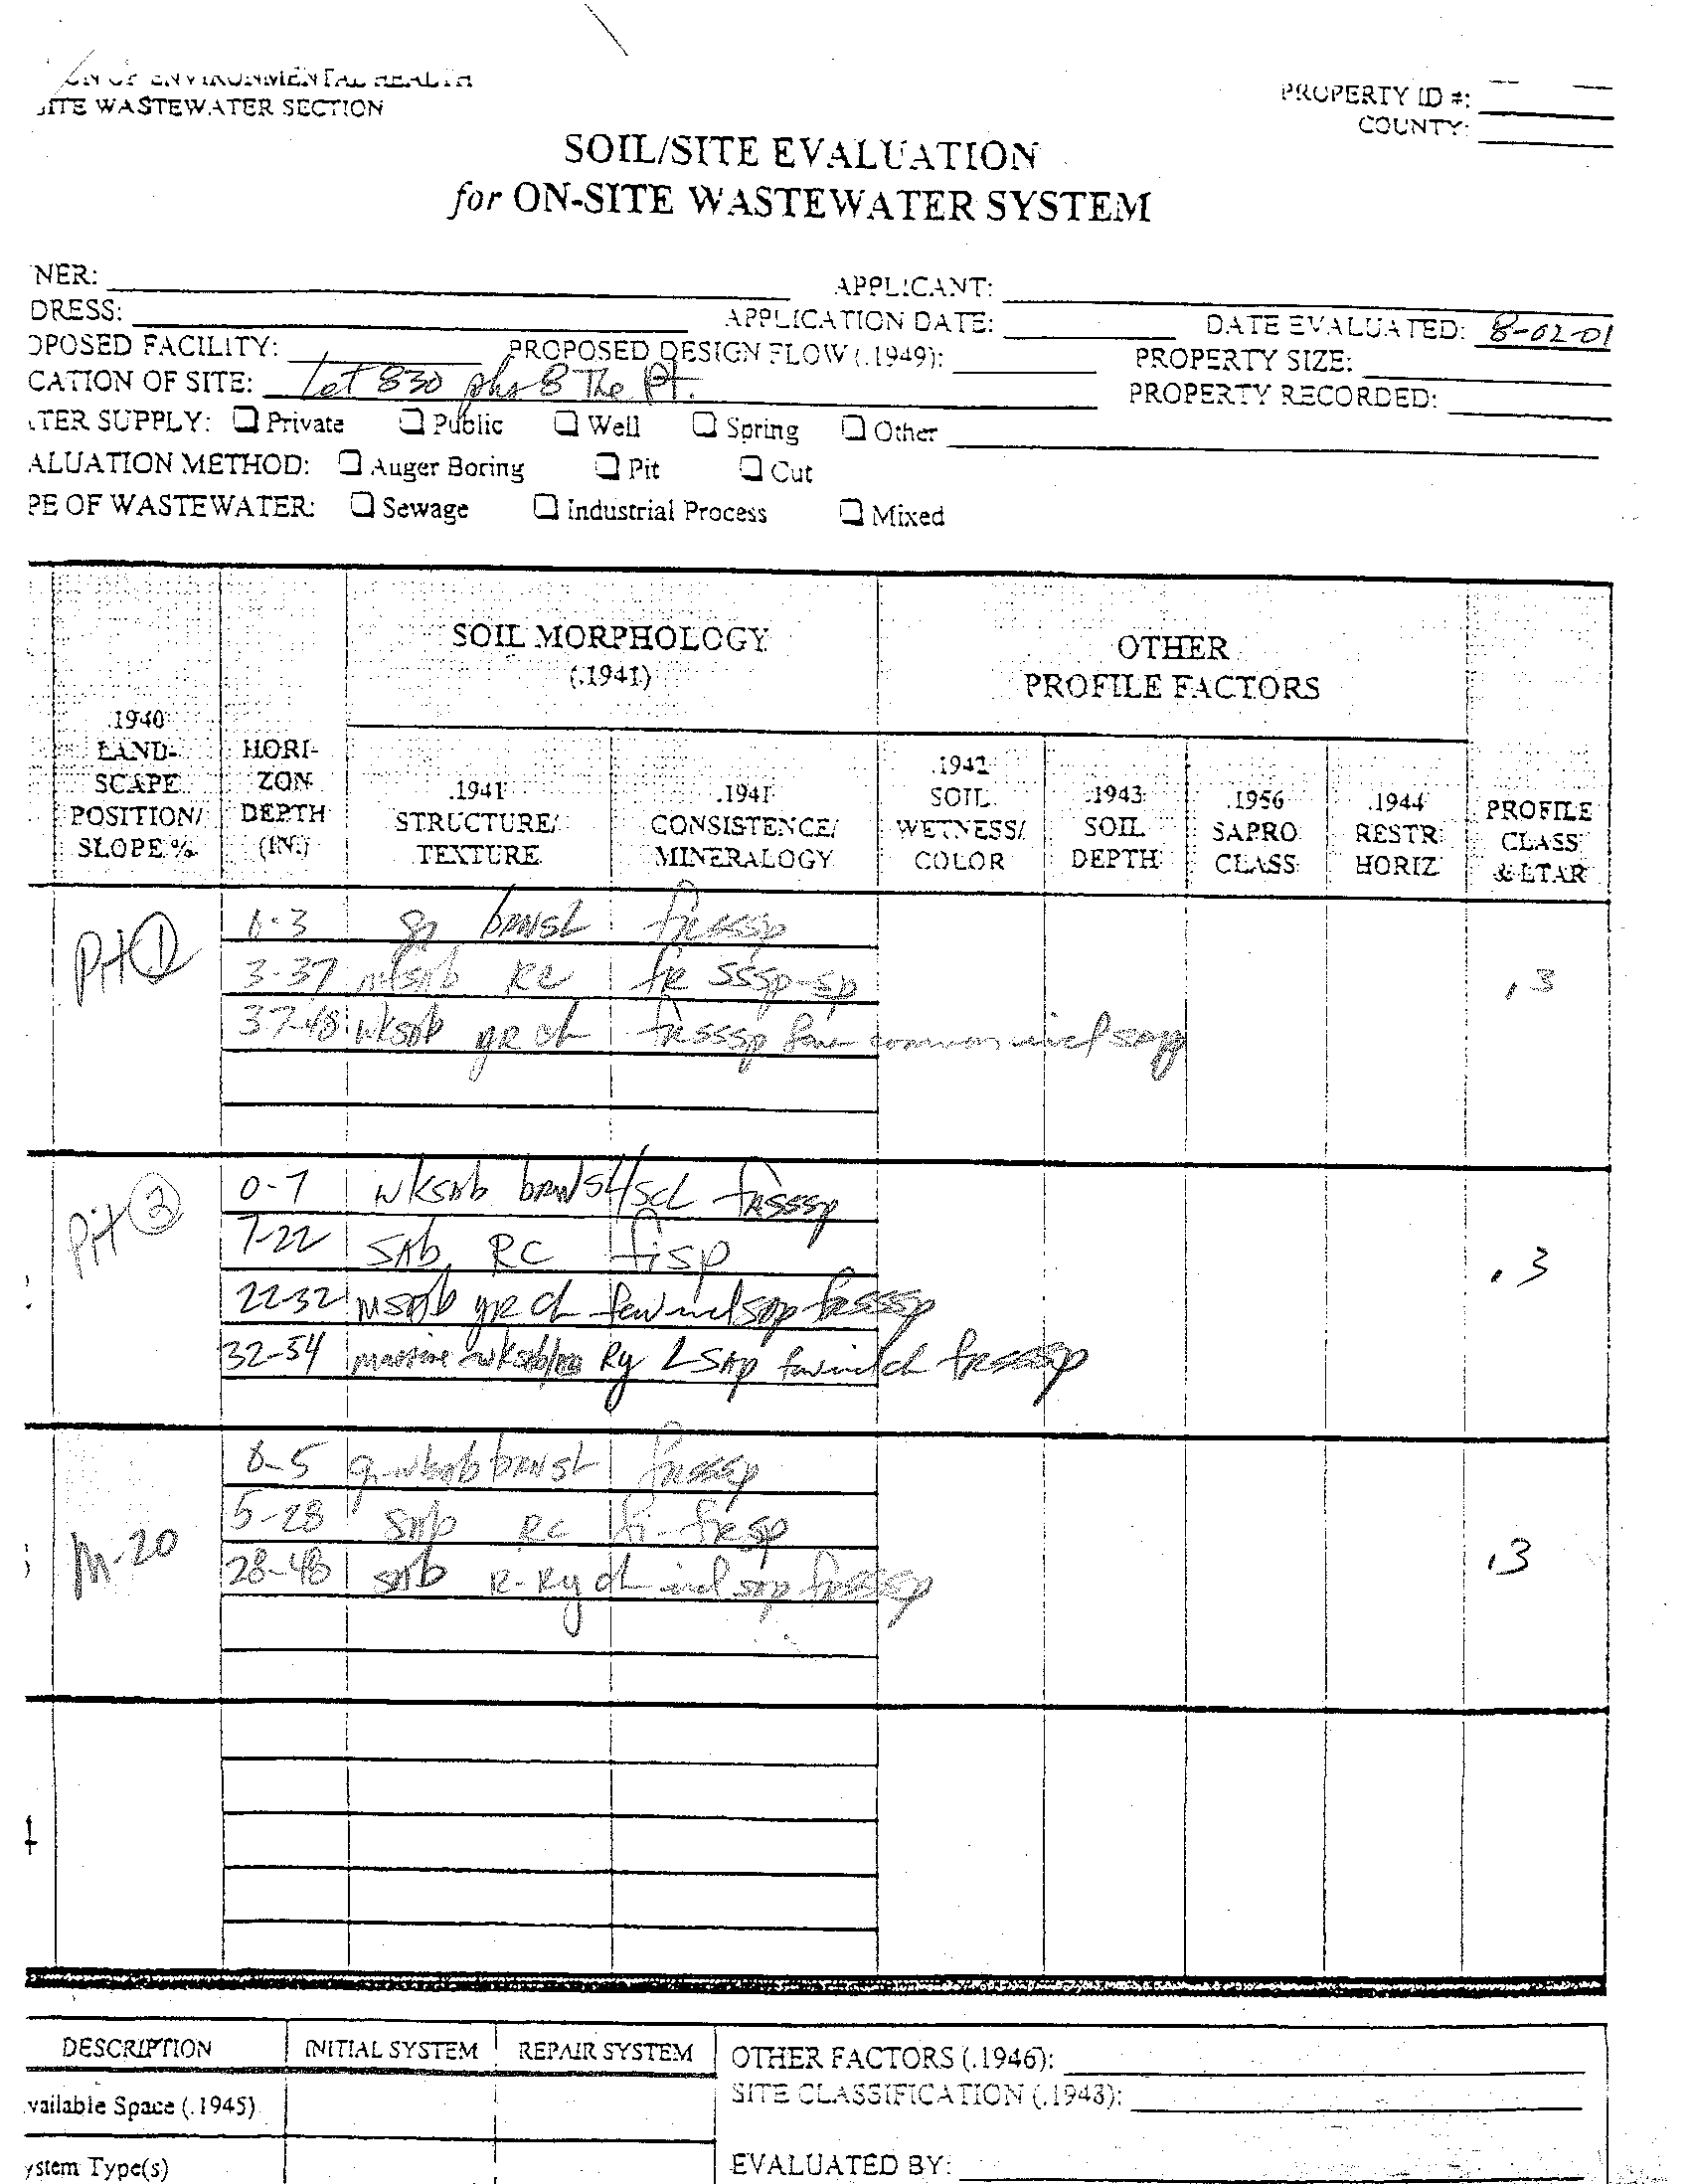 ON OF ENVIRONMENTAL HEALTH
SITE WASTEWATER SECTION
PROPERTY ID #:
COUNTY:
SOIL/SITE EVALUATION
for ON-SITE WASTEWATER SYSTEM
NER:
APPLICANT:
DRESS:
APPLICATION DATE:
DATE EVALUATED: 8-02-01
OPOSED FACILITY:
PROPOSED DESIGN FLOW (.1949):
PROPERTY SIZE:
CATION OF SITE: Lot 830 phs 8 The Pt.
PROPERTY RECORDED:
TER SUPPLY: Private Public Well Spring Other
ALUATION METHOD: Auger Boring Pit Cut
PE OF WASTEWATER: Sewage Industrial Process Mixed
.1940 LAND-SCAPE POSITION/ SLOPE %
HORI-ZON DEPTH (IN.)
SOIL MORPHOLOGY (.1941)
OTHER PROFILE FACTORS
.1941 STRUCTURE/ TEXTURE
.1941 CONSISTENCE/ MINERALOGY
.1942 SOIL WETNESS/ COLOR
.1943 SOIL DEPTH
.1956 SAPRO CLASS
.1944 RESTR HORIZ
PROFILE CLASS & LTAR
Pit 1
0-3 gr brnsL frsssp
3-37 RC fr sssp-sp
.3
37-48 wksab yR cL frsssp common incl sap
Pit 2
0-7 wksab brnsL/scL frsssp
7-22 sab RC fisp
.3
22-32 msab yR cL few incl sap frsssp
32-54 massive Ry L sap frsssp
M-20
0-5 gr-wksab brnsL frsssp
5-28 sab RC fi-frsp
.3
28-48 sab R-Ry cL incl sap frsssp
4
DESCRIPTION
INITIAL SYSTEM
REPAIR SYSTEM
OTHER FACTORS (.1946):
SITE CLASSIFICATION (.1948):
vailable Space (.1945)
ystem Type(s)
EVALUATED BY: